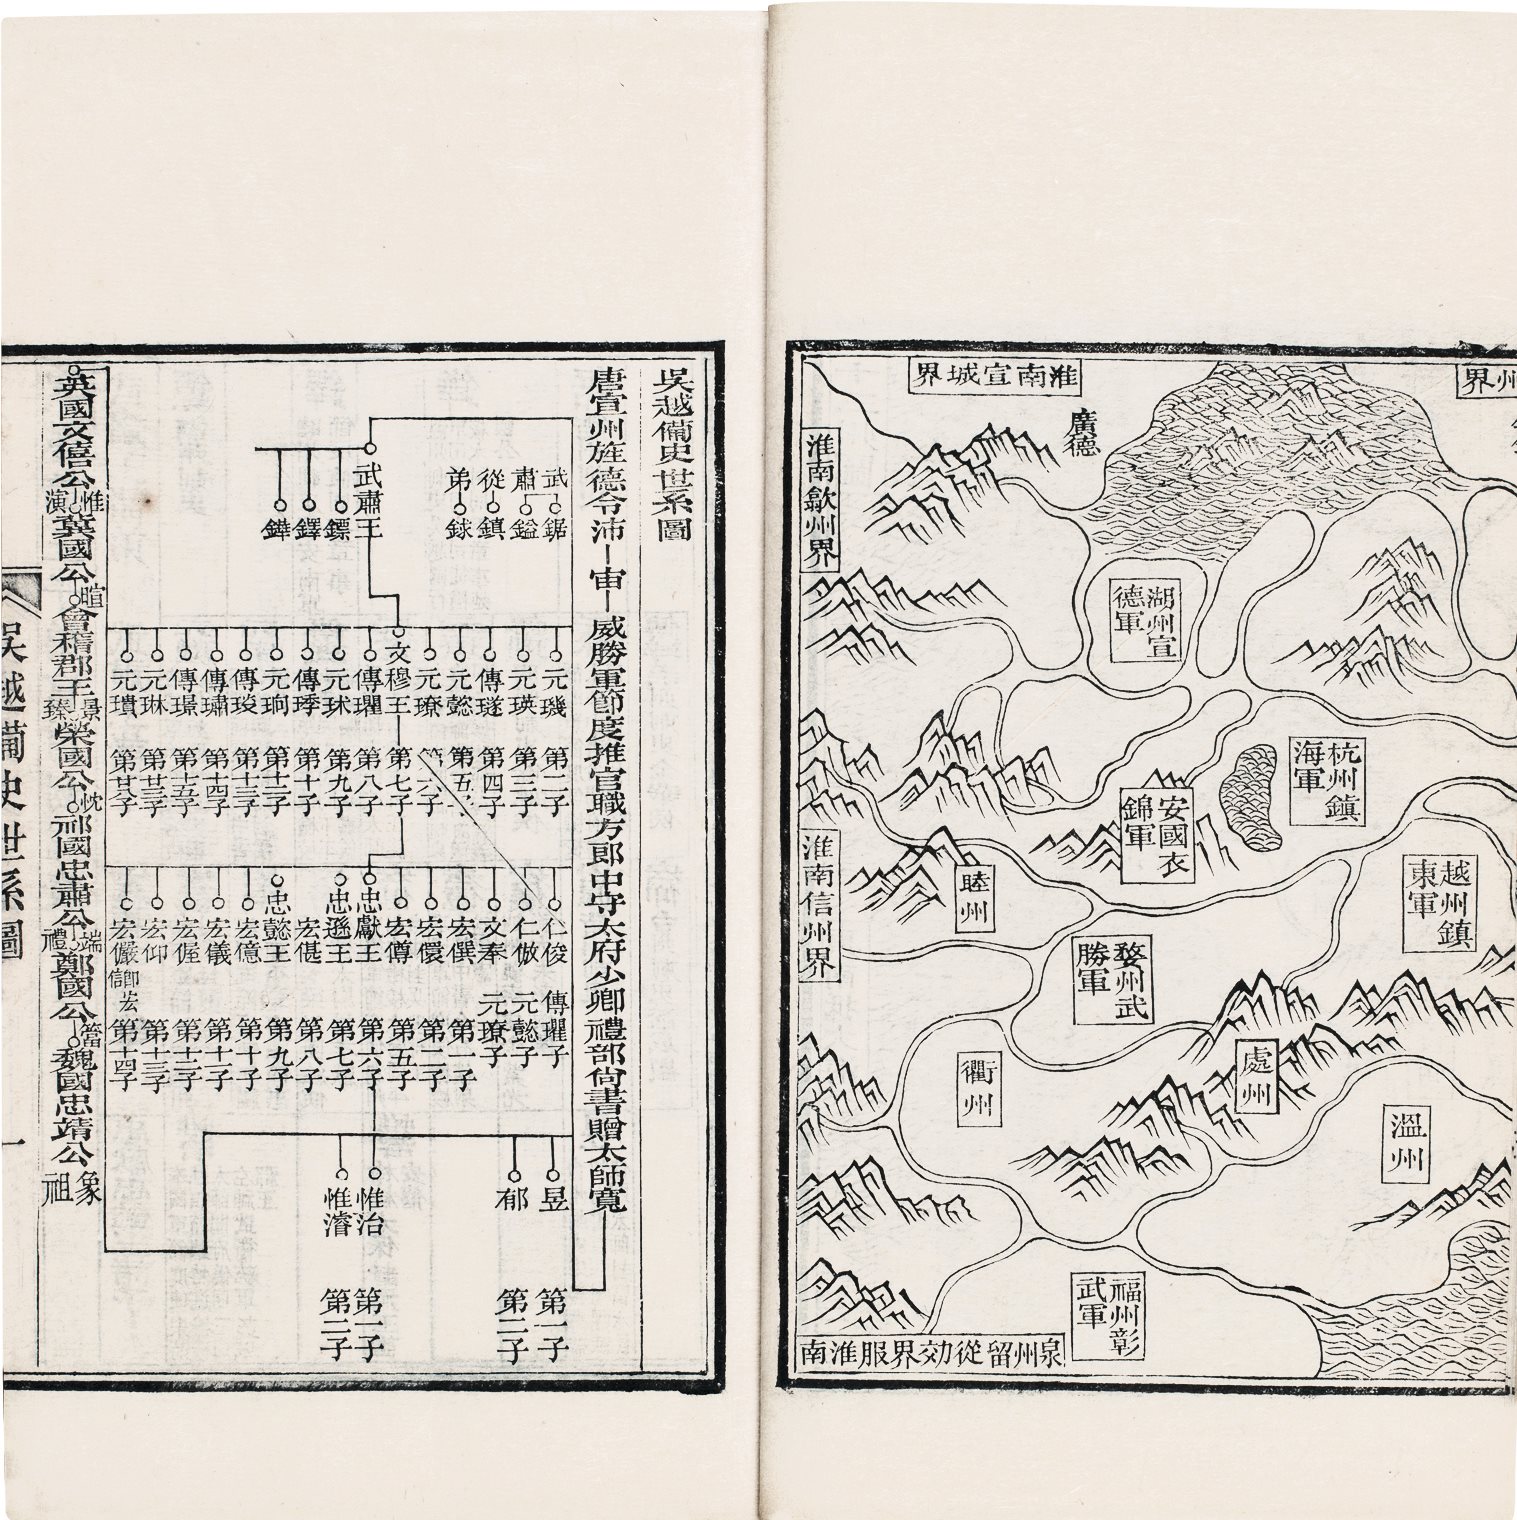 州界
淮南宣城界
廣德
淮南歙州界
湖州宣
德軍
杭州鎮
海軍
安國衣
錦軍
越州鎮
東軍
睦州
淮南信州界
婺州武
勝軍
衢州
處州
溫州
福州彰
武軍
泉州留從効界服淮南
吳越備史世系圖
唐宣州旌德令沛
宙
威勝軍節度推官職方郎中守太府少卿禮部尙書贈太師寬
武肅
從弟
鋸
鎰
鎮
銶
武肅王
鏢
鐸
鏵
元璣 第二子
元瑛 第三子
傳璲 第四子
元懿 第五子
元璙 第六子
文穆王 第七子
傳瓘 第八子
元球 第九子
傳㻑 第十子
元珦 第十二子
傳㻐 第十三子
傳璛 第十四子
傳璟 第十五子
元琳 第廿三子
元璝 第廿子
仁俊 傳瓘子
仁倣 元懿子
文奉 元璙子
宏僎 第一子
宏儇 第二子
宏僔 第五子
忠獻王 第六子
忠遜王 第七子
宏偡 第八子
忠懿王 第九子
宏億 第十子
宏儀 第十一子
宏偓 第十二子
宏仰 第十三子
宏儼 卽宏信 第十四子
昱 第一子
郁 第二子
惟治 第一子
惟濬 第二子
英國文僖公
惟演
冀國公
暄
會稽郡王
景臻
榮國公
忱
祁國忠肅公
端禮
鄭國公
簹
魏國忠靖公
象祖
吳越備史世系圖
一